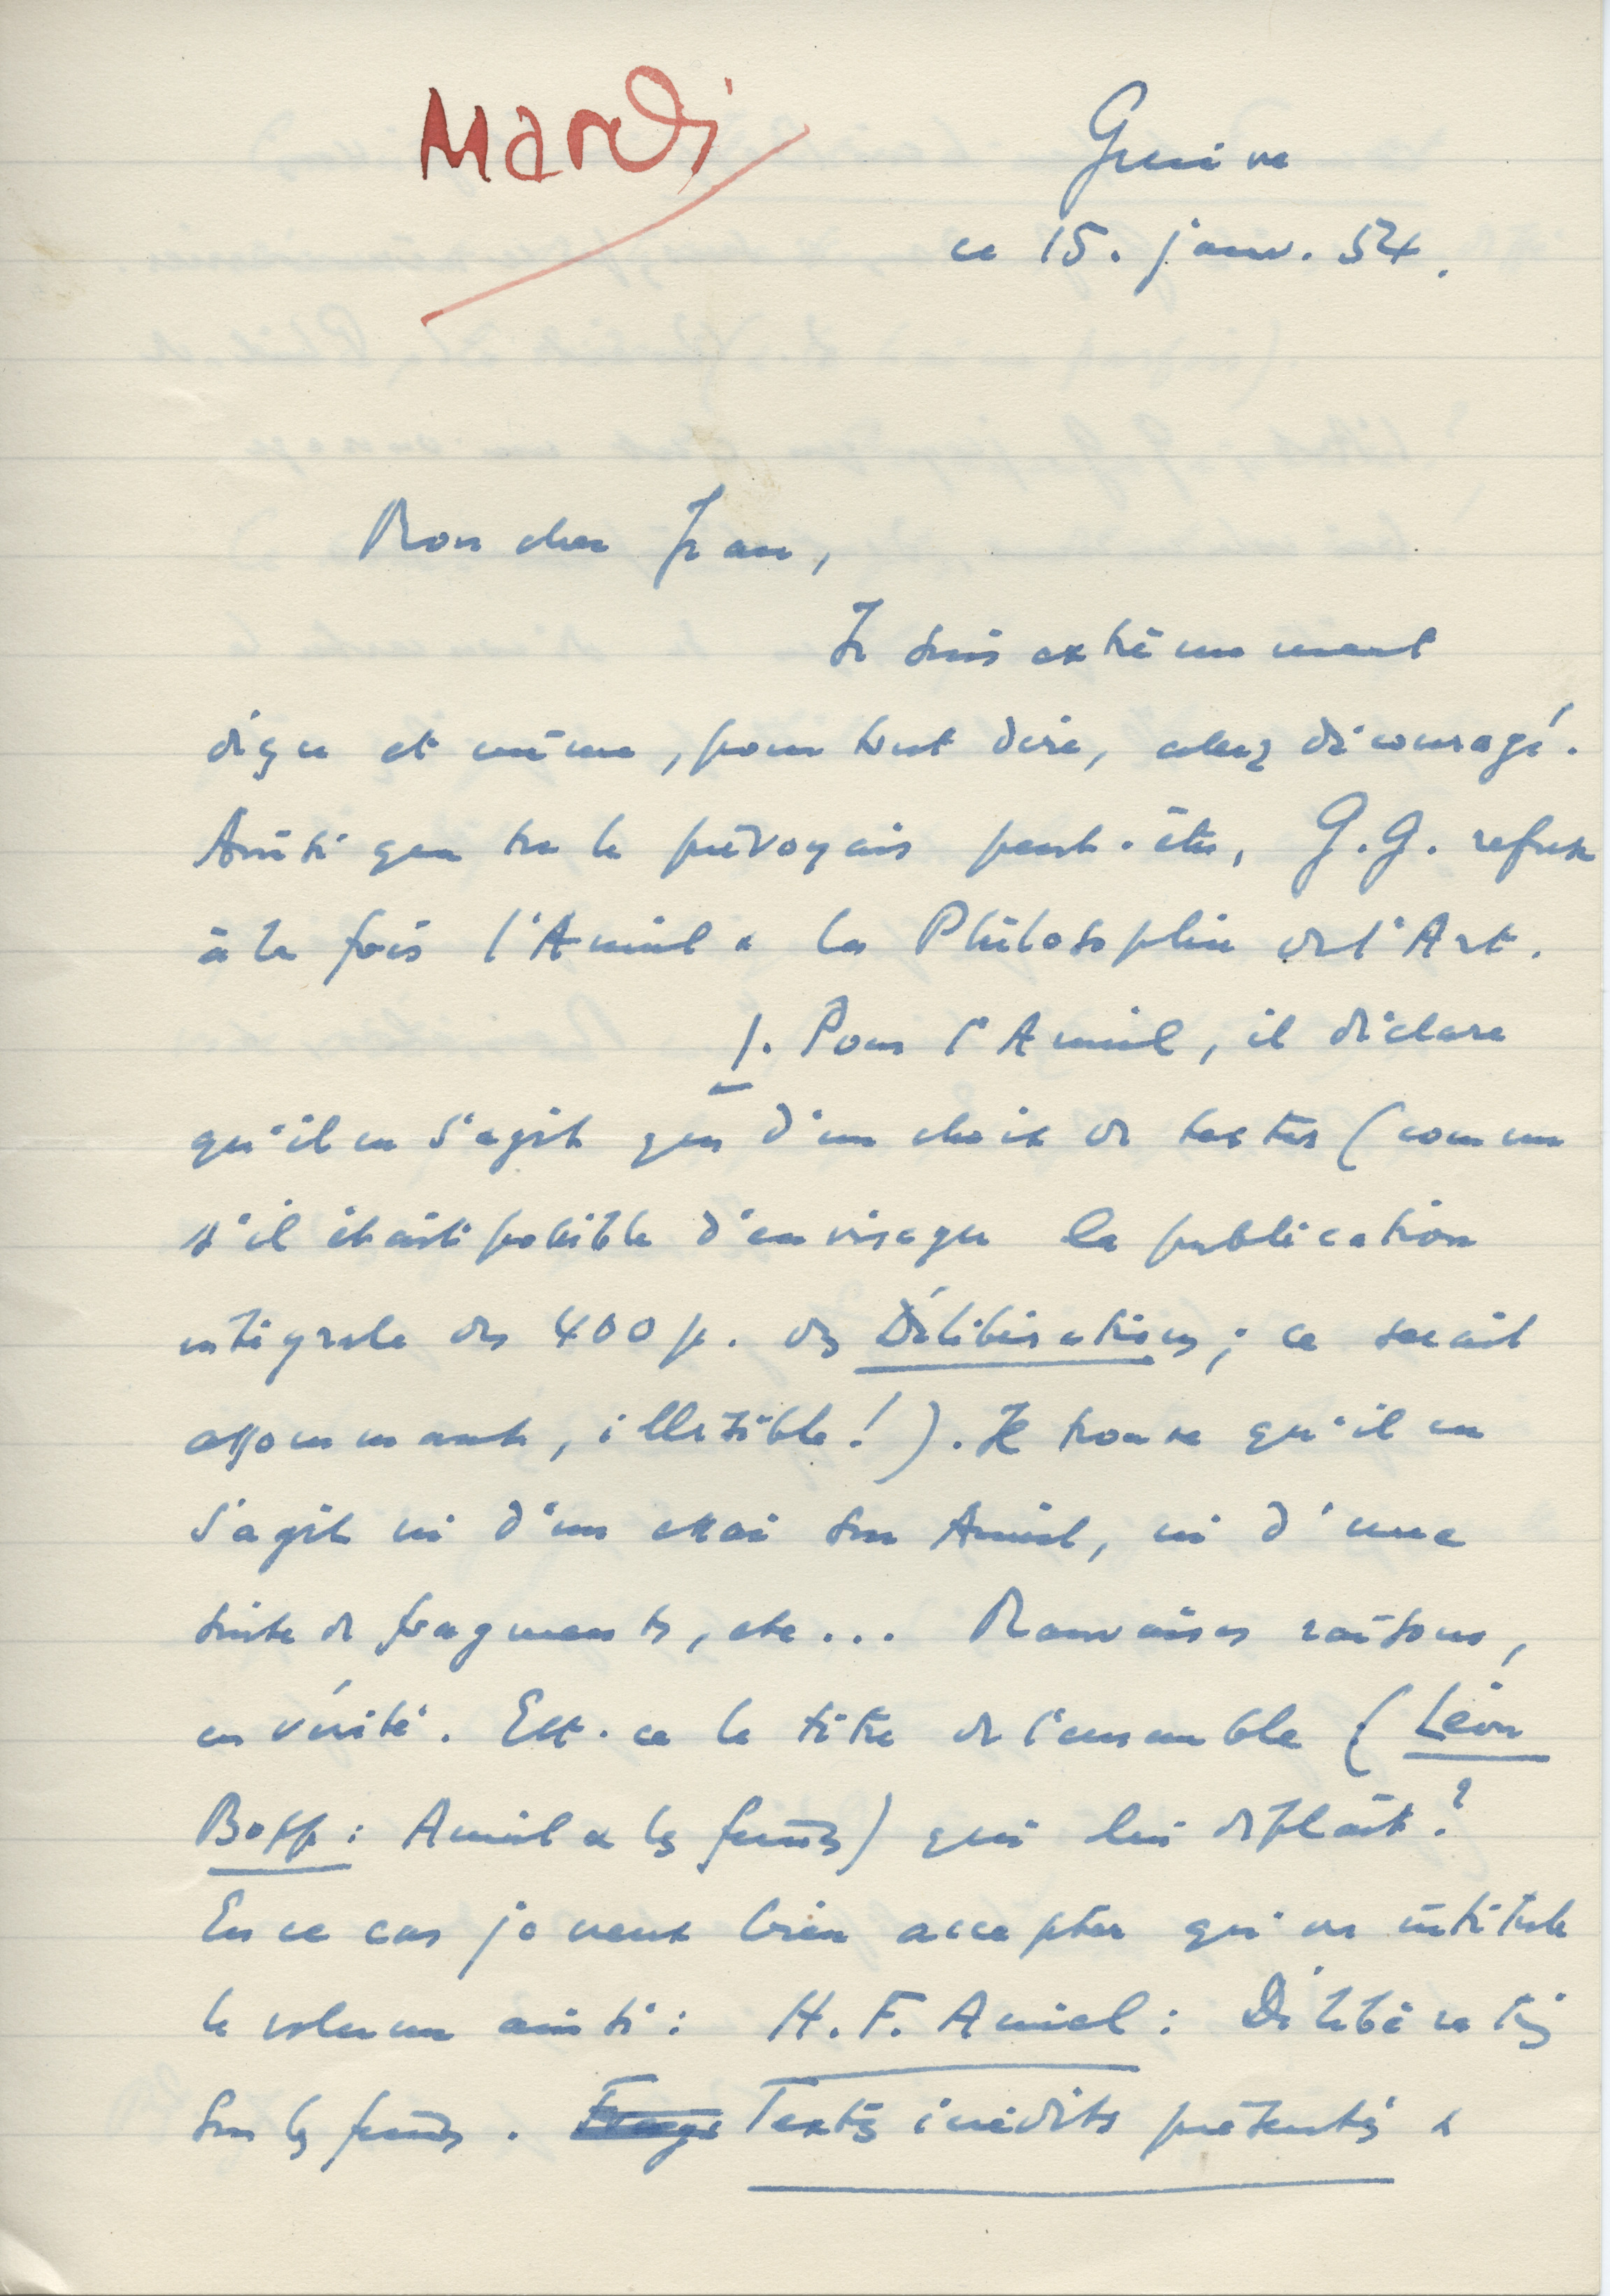 Mardi
Genève
ce 15. janv. 54.
Mon cher Jean,
Je suis extrêmement
déçu et même, pour tout dire, assez découragé.
Ainsi que tu le prévoyais peut-être, G.G. refuse
à la fois l'Amiel & la Philosophie de l'Art.
1. Pour l'Amiel, il déclare
qu'il ne s'agit que d'un choix de textes (comme
s'il était possible d'envisager la publication
intégrale des 400 p. des Délibérations; ce serait
assommant, illisible!). Il trouve qu'il ne
s'agit ni d'un essai sur Amiel, ni d'une
suite de fragments, etc... Mauvaises raisons,
en vérité. Est-ce le titre de l'ensemble (Léon
Bopp: Amiel & les femmes) qui lui déplaît?
En ce cas je veux bien accepter qu'on intitule
le volume ainsi: H. F. Amiel: Délibérations
sur les femmes. Textes inédits présentés &